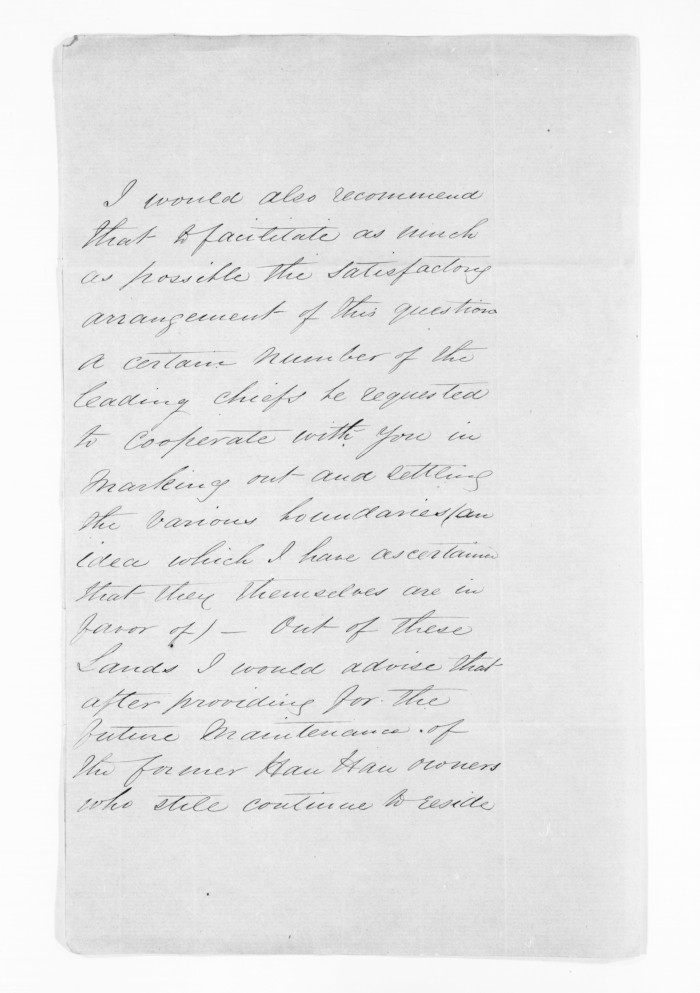 I would also recommend
that to facilitate as much
as possible the satisfactory
arrangement of this question
a certain number of the
leading chiefs be requested
to cooperate with you in
marking out and settling
the various boundaries (an
idea which I have ascertained
that they themselves are in
favor of) — Out of these
Lands I would advise that
after providing for the
future maintenance of
the former Hau Hau owners
who still continue to reside